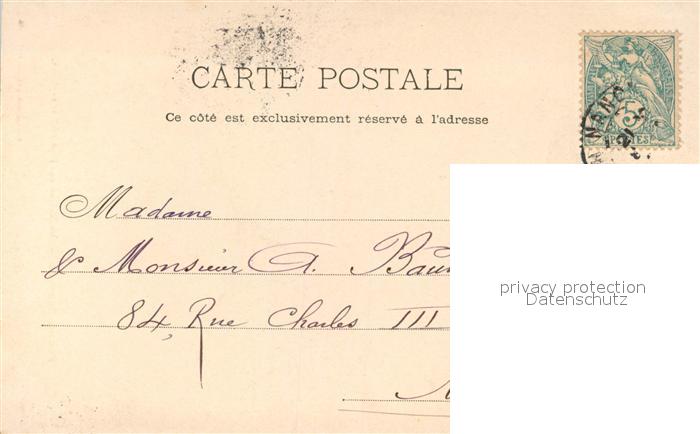 CARTE POSTALE
Ce côté est exclusivement réservé à l'adresse
NANC
5
21
Madame
& Monsieur A.
84, Rue Charles III
privacy protection
Datenschutz